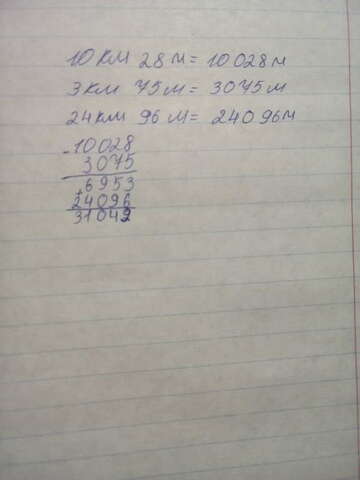 10 км 28 м = 10028м
3 км 75 м = 3075 м
24 км 96 м = 24096м
- 10028
3075
6953
+
24096
31049